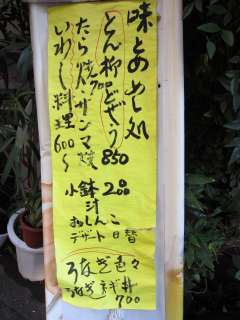 味とめし処
とん柳700どぜう
850
たら焼サンマ焼
いわし料理600～
小鉢200
汁
おしんこ
デザート日替
うなぎ色々
うなぎ丼
700